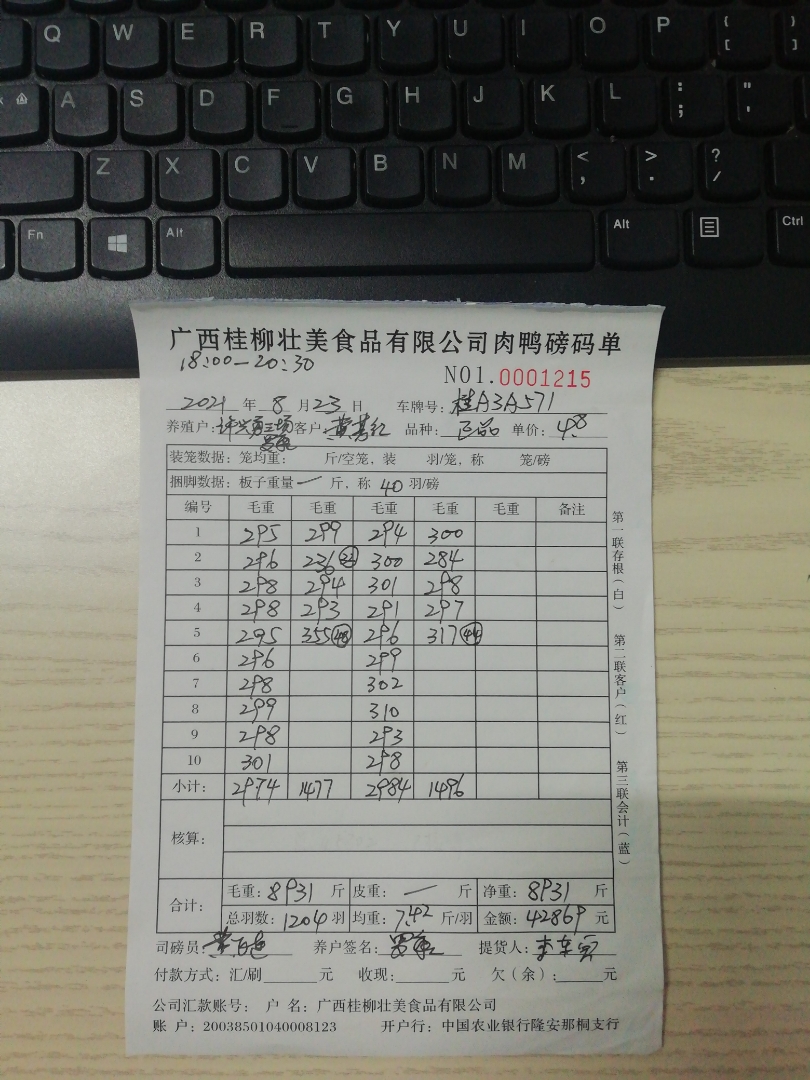 Q W E R T Y U I O P { [ } ]
A S D F G H J K L : ; " '
Z X C V B N M < , > . ? /
Fn Alt Alt Ctrl
广西桂柳壮美食品有限公司肉鸭磅码单
18:00-20:30
NO1.0001215
2021 年 8 月 23 日 车牌号: 桂A3A571
养殖户: 许兴勇三场 客户: 品种: 正品 单价: 4.8
装笼数据: 笼均重: 斤/空笼, 装 羽/笼, 称 笼/磅
捆脚数据: 板子重量 — 斤, 称 40 羽/磅
编号 毛重 毛重 毛重 毛重 毛重 备注
1 295 299 294 300
2 296 236 300 284
3 298 294 301 298
4 298 293 291 297
5 295 355 48 296 317 44
6 296 299
7 298 302
8 299 310
9 298 293
10 301 298
小计: 2974 1477 2984 1496
核算:
合计: 毛重: 8931 斤 皮重: — 斤 净重: 8931 斤
总羽数: 1204 羽 均重: 7.42 斤/羽 金额: 42869 元
司磅员: 养户签名: 提货人:
付款方式: 汇/刷 元 收现: 元 欠(余): 元
公司汇款账号: 户 名: 广西桂柳壮美食品有限公司
账 户: 20038501040008123 开户行: 中国农业银行隆安那桐支行
第一联存根(白)
第二联客户(红)
第三联会计(蓝)